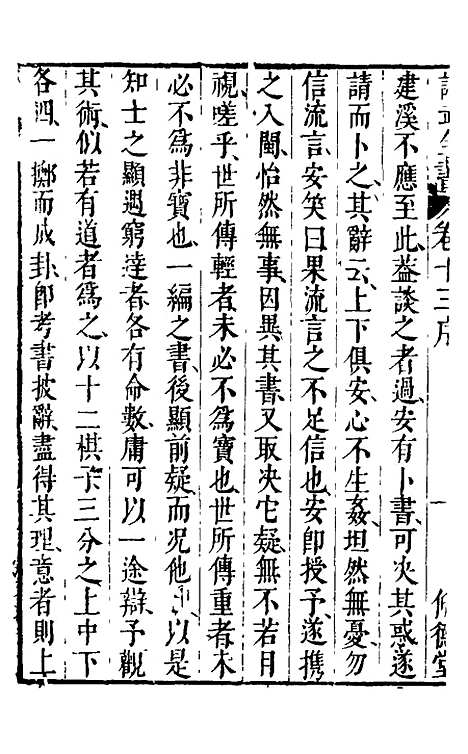 卷十三序 一 脩德堂
建溪不應至此葢談之者過安有卜書可决其惑遂
請而卜之其辭云上下俱安心不生姦坦然無憂勿
信流言安笑曰果流言之不足信也安卽授予遂携
之入閩怡然無事因異其書又取决它疑無不若目
視嗟乎世所傳輕者未必不爲寶也世所傳重者未
必不爲非寶也一編之書後顯前疑而况他
以是
知士之顯遇窮達者各有命數庸可以一途辯予觀
其術似若有道者爲之以十二棋
三分之上中下
各四一擲而成卦卽考書披辭盡得其理意者則上